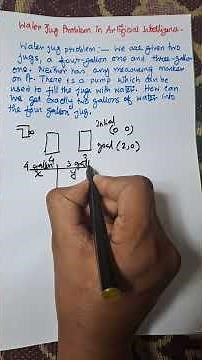 Water Jug Problem in Artificial Intelligence.
Water jug problem :- We are given two
jugs, a four-gallon one and three-gallon
one. Neither has any measuring marker
on it. There is a pump which can be
used to fill the jugs with water. How can
we get exactly two gallons of water into
the four gallon jug.
Initial
(0 0)
goal (2,0)
4 gallon 3 gall
x y